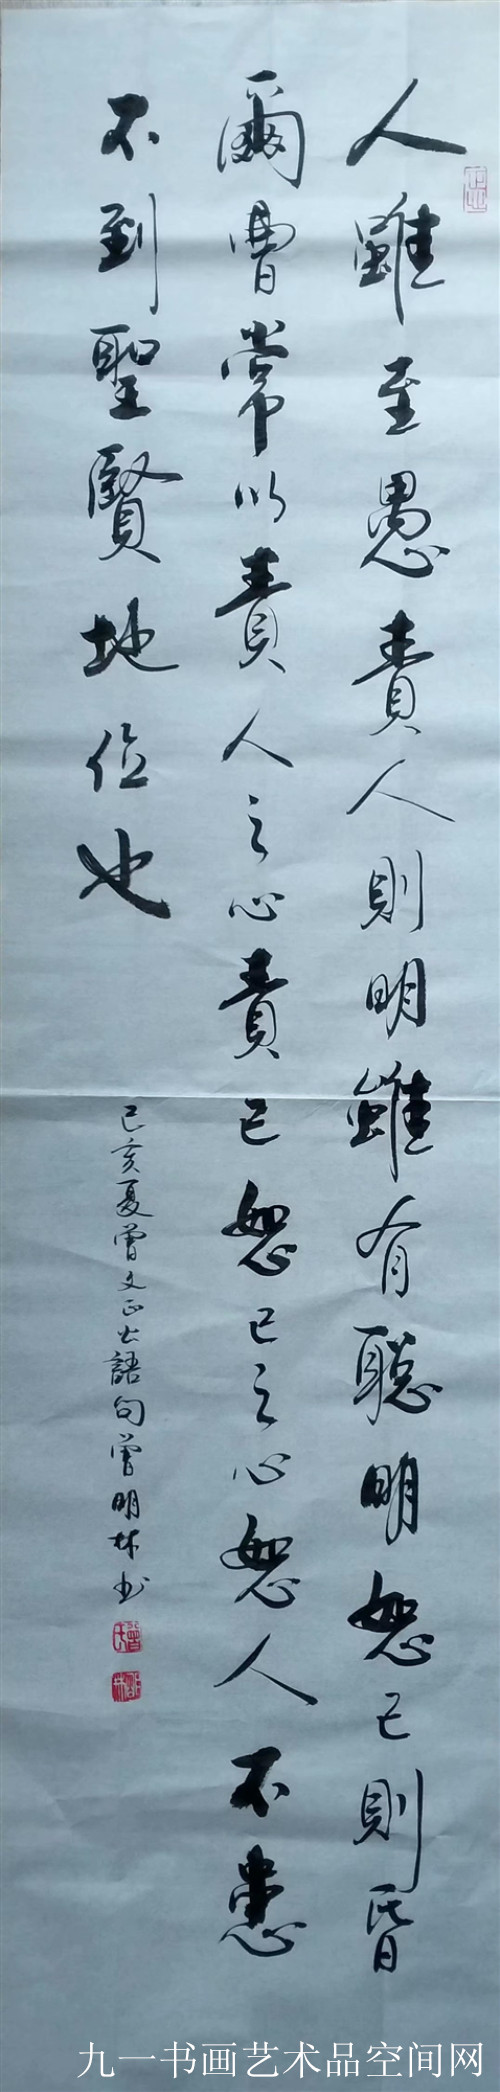 人雖至愚責人則明雖有聰明恕己則昏
爾曹常以責人之心責己恕己之心恕人不患
不到聖賢地位也
己亥夏曾文正公語句曾明林书
九一书画艺术品空间网